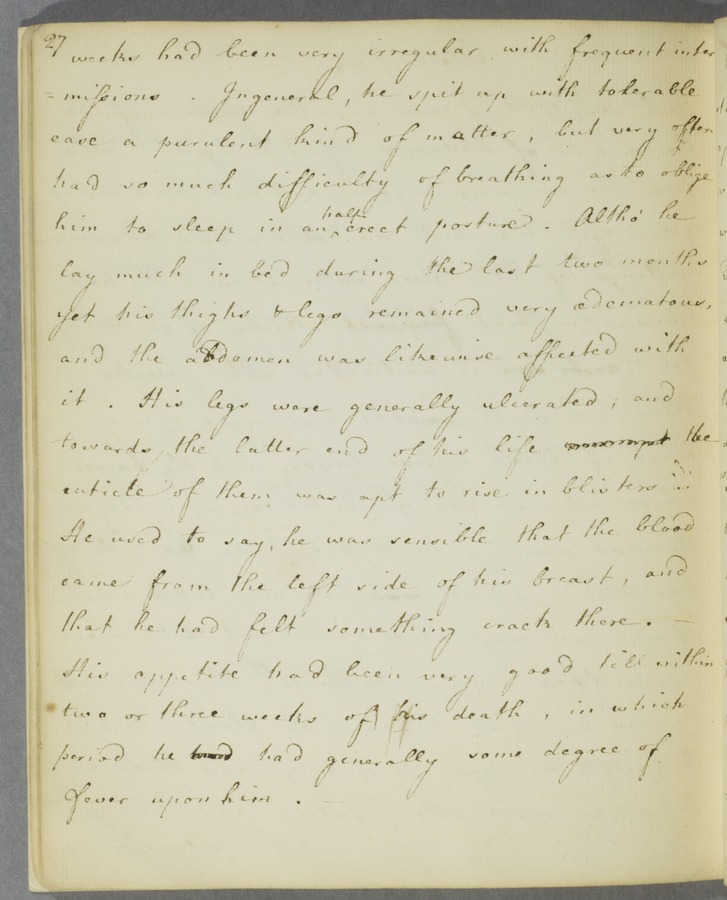 27
weeks had been very irregular with frequent inter
=missions . Ingeneral, he spit up with tolerable
ease a purulent kind of matter, but very often
had so much difficulty of breathing as to oblige
him to sleep in an half erect posture. Altho' he
lay much in bed during the last two months
yet his thighs & legs remained very œdematous,
and the abdomen was likewise affected with
it. His legs were generally ulcerated, and
towards the latter end of his life the
cuticle of them was apt to rise in blisters
He used to say, he was sensible that the blood
came from the left side of his breast, and
that he had felt something crack there. —
His appetite had been very good till within
two or three weeks of his death, in which
period he had generally some degree of
fever upon him . —